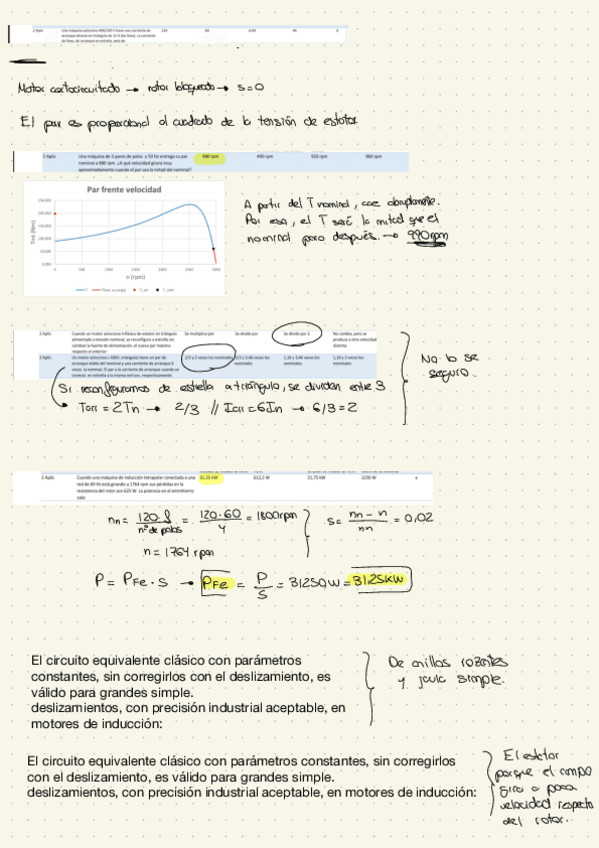 2 Aplic Una máquina asíncrona 400/230 V tiene una corriente de
arranque directo en triángulo de 12 A (de línea). La corriente
de línea, de arranque en estrella, será de:
Motor cortocircuitado → rotor bloqueado → s=0
El par es proporcional al cuadrado de la tensión de estator
2 Aplic Una máquina de 3 pares de polos y 50 Hz entrega su par 990 rpm 490 rpm 920 rpm 960 rpm
nominal a 980 rpm. ¿A qué velocidad girará muy
aproximadamente cuando el par sea la mitad del nominal?
Par frente velocidad
n (rpm)
A partir del T nominal, cae abruptamente.
Por eso, el T será la mitad que el
nominal poco después. → 990rpm
2 Aplic Cuando un motor asíncrono trifásico de estator en triángulo Se multiplica por Se divide por Se divide por 3 No cambia, pero se
alimentado a tensión nominal, se reconfigura a estrella sin produce a otra velocidad
cambiar la fuente de alimentación, el nuevo par máximo distinta.
respecto al anterior
2 Aplic Un motor asíncrono ( 400V, triángulo) tiene un par de 2/3 y 2 veces los nominales 2/3 y 3,46 veces los 1,16 y 3,46 veces los 1,16 y 2 veces los
arranque doble del nominal y una corriente de arranque 6 nominales nominales nominales
veces la nominal. El par y la corriente de arranque cuando se
conecta en estrella a la misma red son, respectivamente:
No lo se
seguro.
Si reconfiguramos de estrella a triángulo, se dividen entre 3
• Tarr = 2Tn → 2/3 // Iarr = 6In → 6/3 = 2
2 Aplic Cuando una máquina de inducción tetrapolar conectada a una 31,25 kW 612,5 W 31,75 kW 1250 W a
red de 60 Hz está girando a 1764 rpm sus pérdidas en la
resistencia del rotor son 625 W. La potencia en el entrehierro
vale:
nn = 120·f / nº de polos = 120·60 / 4 = 1800rpm
n = 1764 rpm
s = nn - n / nn = 0,02
P = PFe · s → PFe = P/s = 31250W = 31.25KW
El circuito equivalente clásico con parámetros
constantes, sin corregirlos con el deslizamiento, es
válido para grandes simple.
deslizamientos, con precisión industrial aceptable, en
motores de inducción:
De anillos rozantes
y jaula simple.
El circuito equivalente clásico con parámetros constantes, sin corregirlos
con el deslizamiento, es válido para grandes simple.
deslizamientos, con precisión industrial aceptable, en motores de inducción:
El estator
porque el campo
gira a poca
velocidad respecto
del rotor.